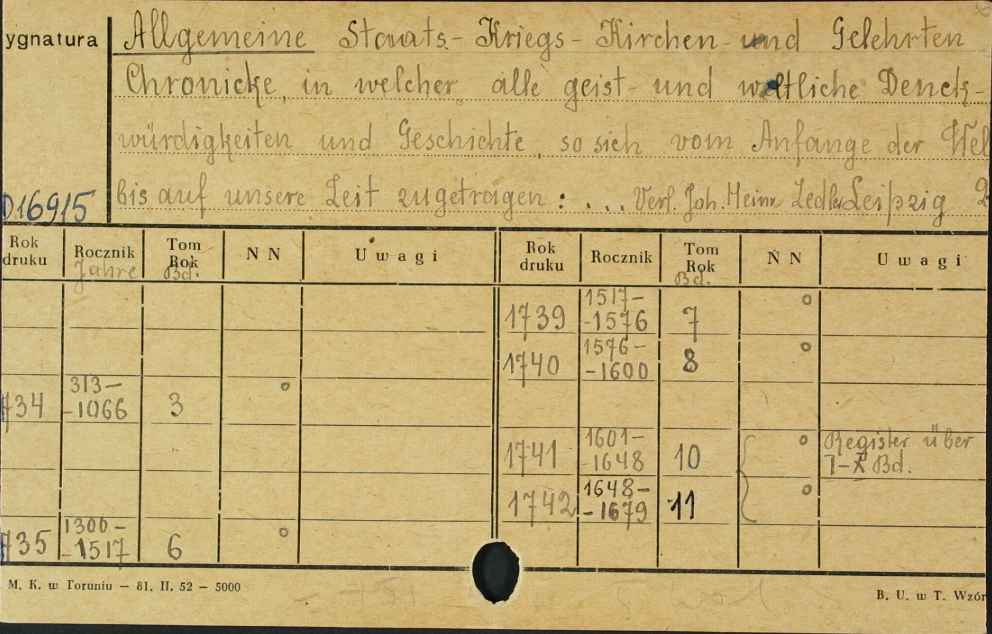 ygnatura
Allgemeine Staats- Kriegs- Kirchen- und Gelehrten
Chronicke, in welcher alle geist- und weltliche Denck-
würdigkeiten und Geschichte, so sich vom Anfange der Wel
bis auf unsere Zeit zugetragen: ... Verl. Joh. Heinr. Zedler Leipzig 2
D16915
Rok druku Rocznik Jahre Tom Rok Bd. N N Uwagi Rok druku Rocznik Tom Rok Bd. N N Uwagi
1739 1517- -1576 7 o
1740 1576- -1600 8 o
734 313- -1066 3 o
1741 1601- -1648 10 o Register über I-X Bd.
1742 1648- -1679 11 o
735 1300- -1517 6 o
M. K. w Toruniu — 81. II. 52 — 5000
B. U. w T. Wzór